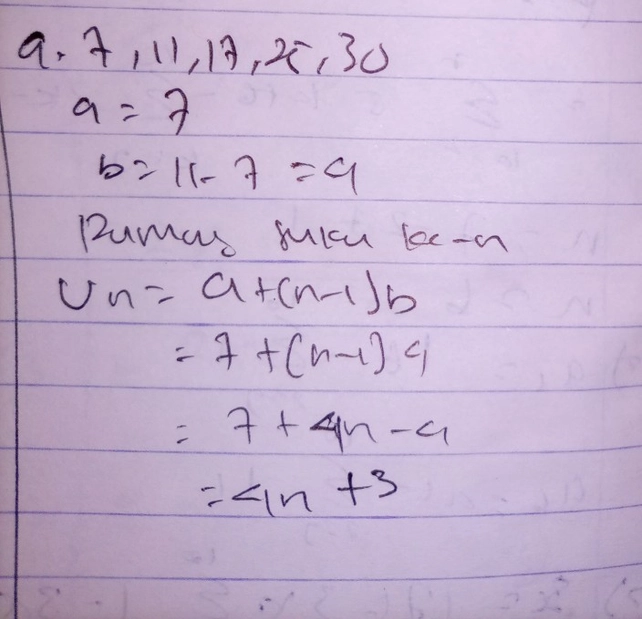 a. 7, 11, 17, 25, 30
a = 7
b = 11 - 7 = 4
Rumus suku ke-n
Un = a + (n-1)b
= 7 + (n-1) 4
= 7 + 4n - 4
= 4n + 3